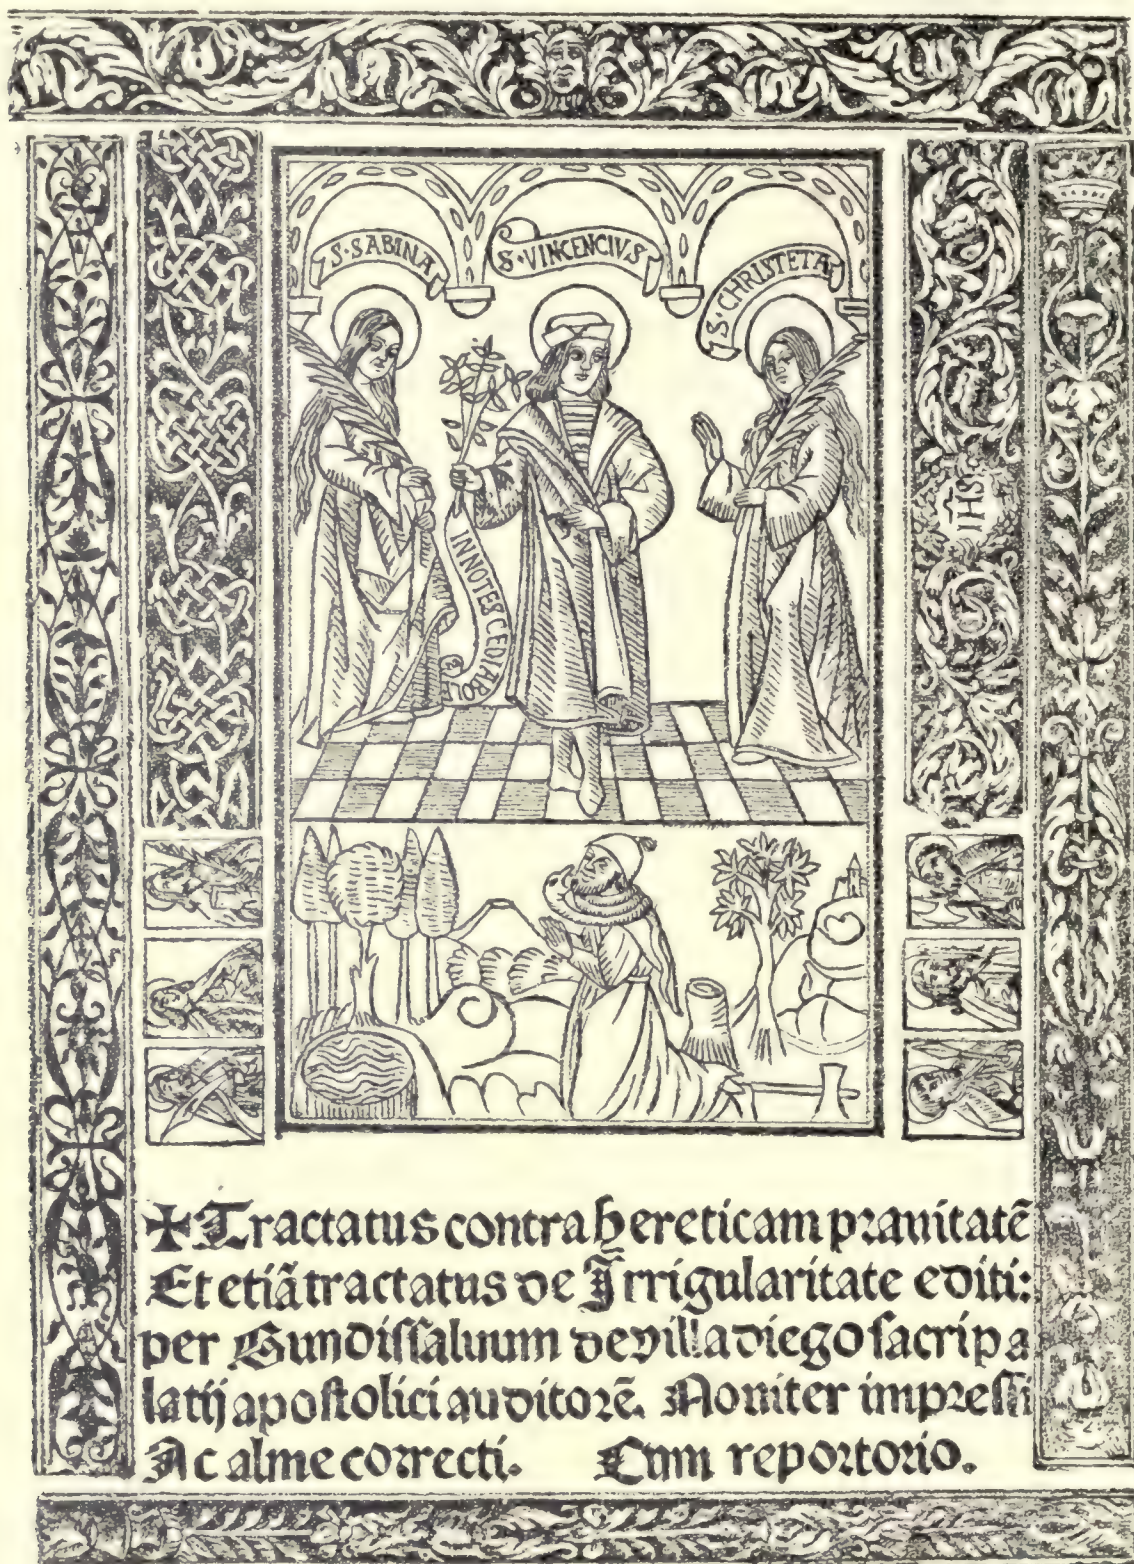 S·SABINA
S·VINCENCIVS
S·CHRISTETA
INNOTESCEDIABOL
IHS
✠Tractatus contra hereticam prauitatē
Et etiā tractatus de Irrigularitate editi:
per Gundissaluum de villa diego sacri pa
latij apostolici auditorē. Nouiter impressi
Ac alme correcti. Cum reportorio.